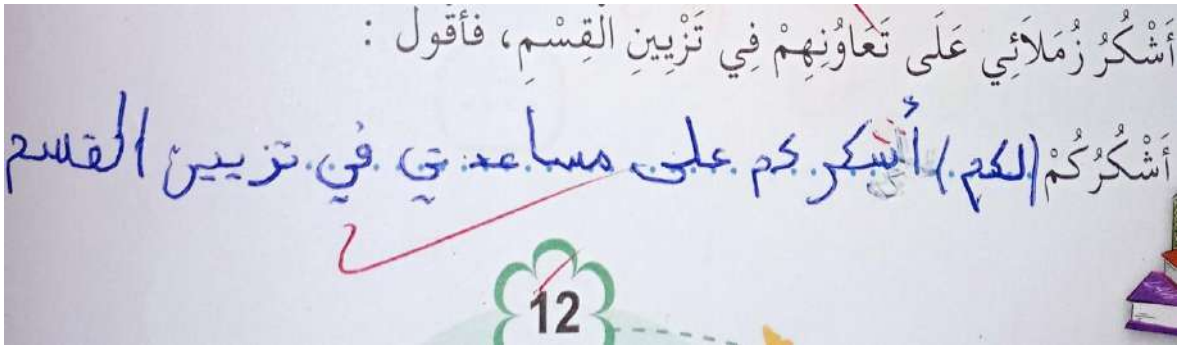 أَشْكُرُ زُمَلَائِي عَلَى تَعَاوُنِهِمْ فِي تَزْيِينِ الْقِسْمِ، فَأَقُول :
أَشْكُرُكُمْ (لكم) أشكركم على مساعدتي في تزيين القسم
12